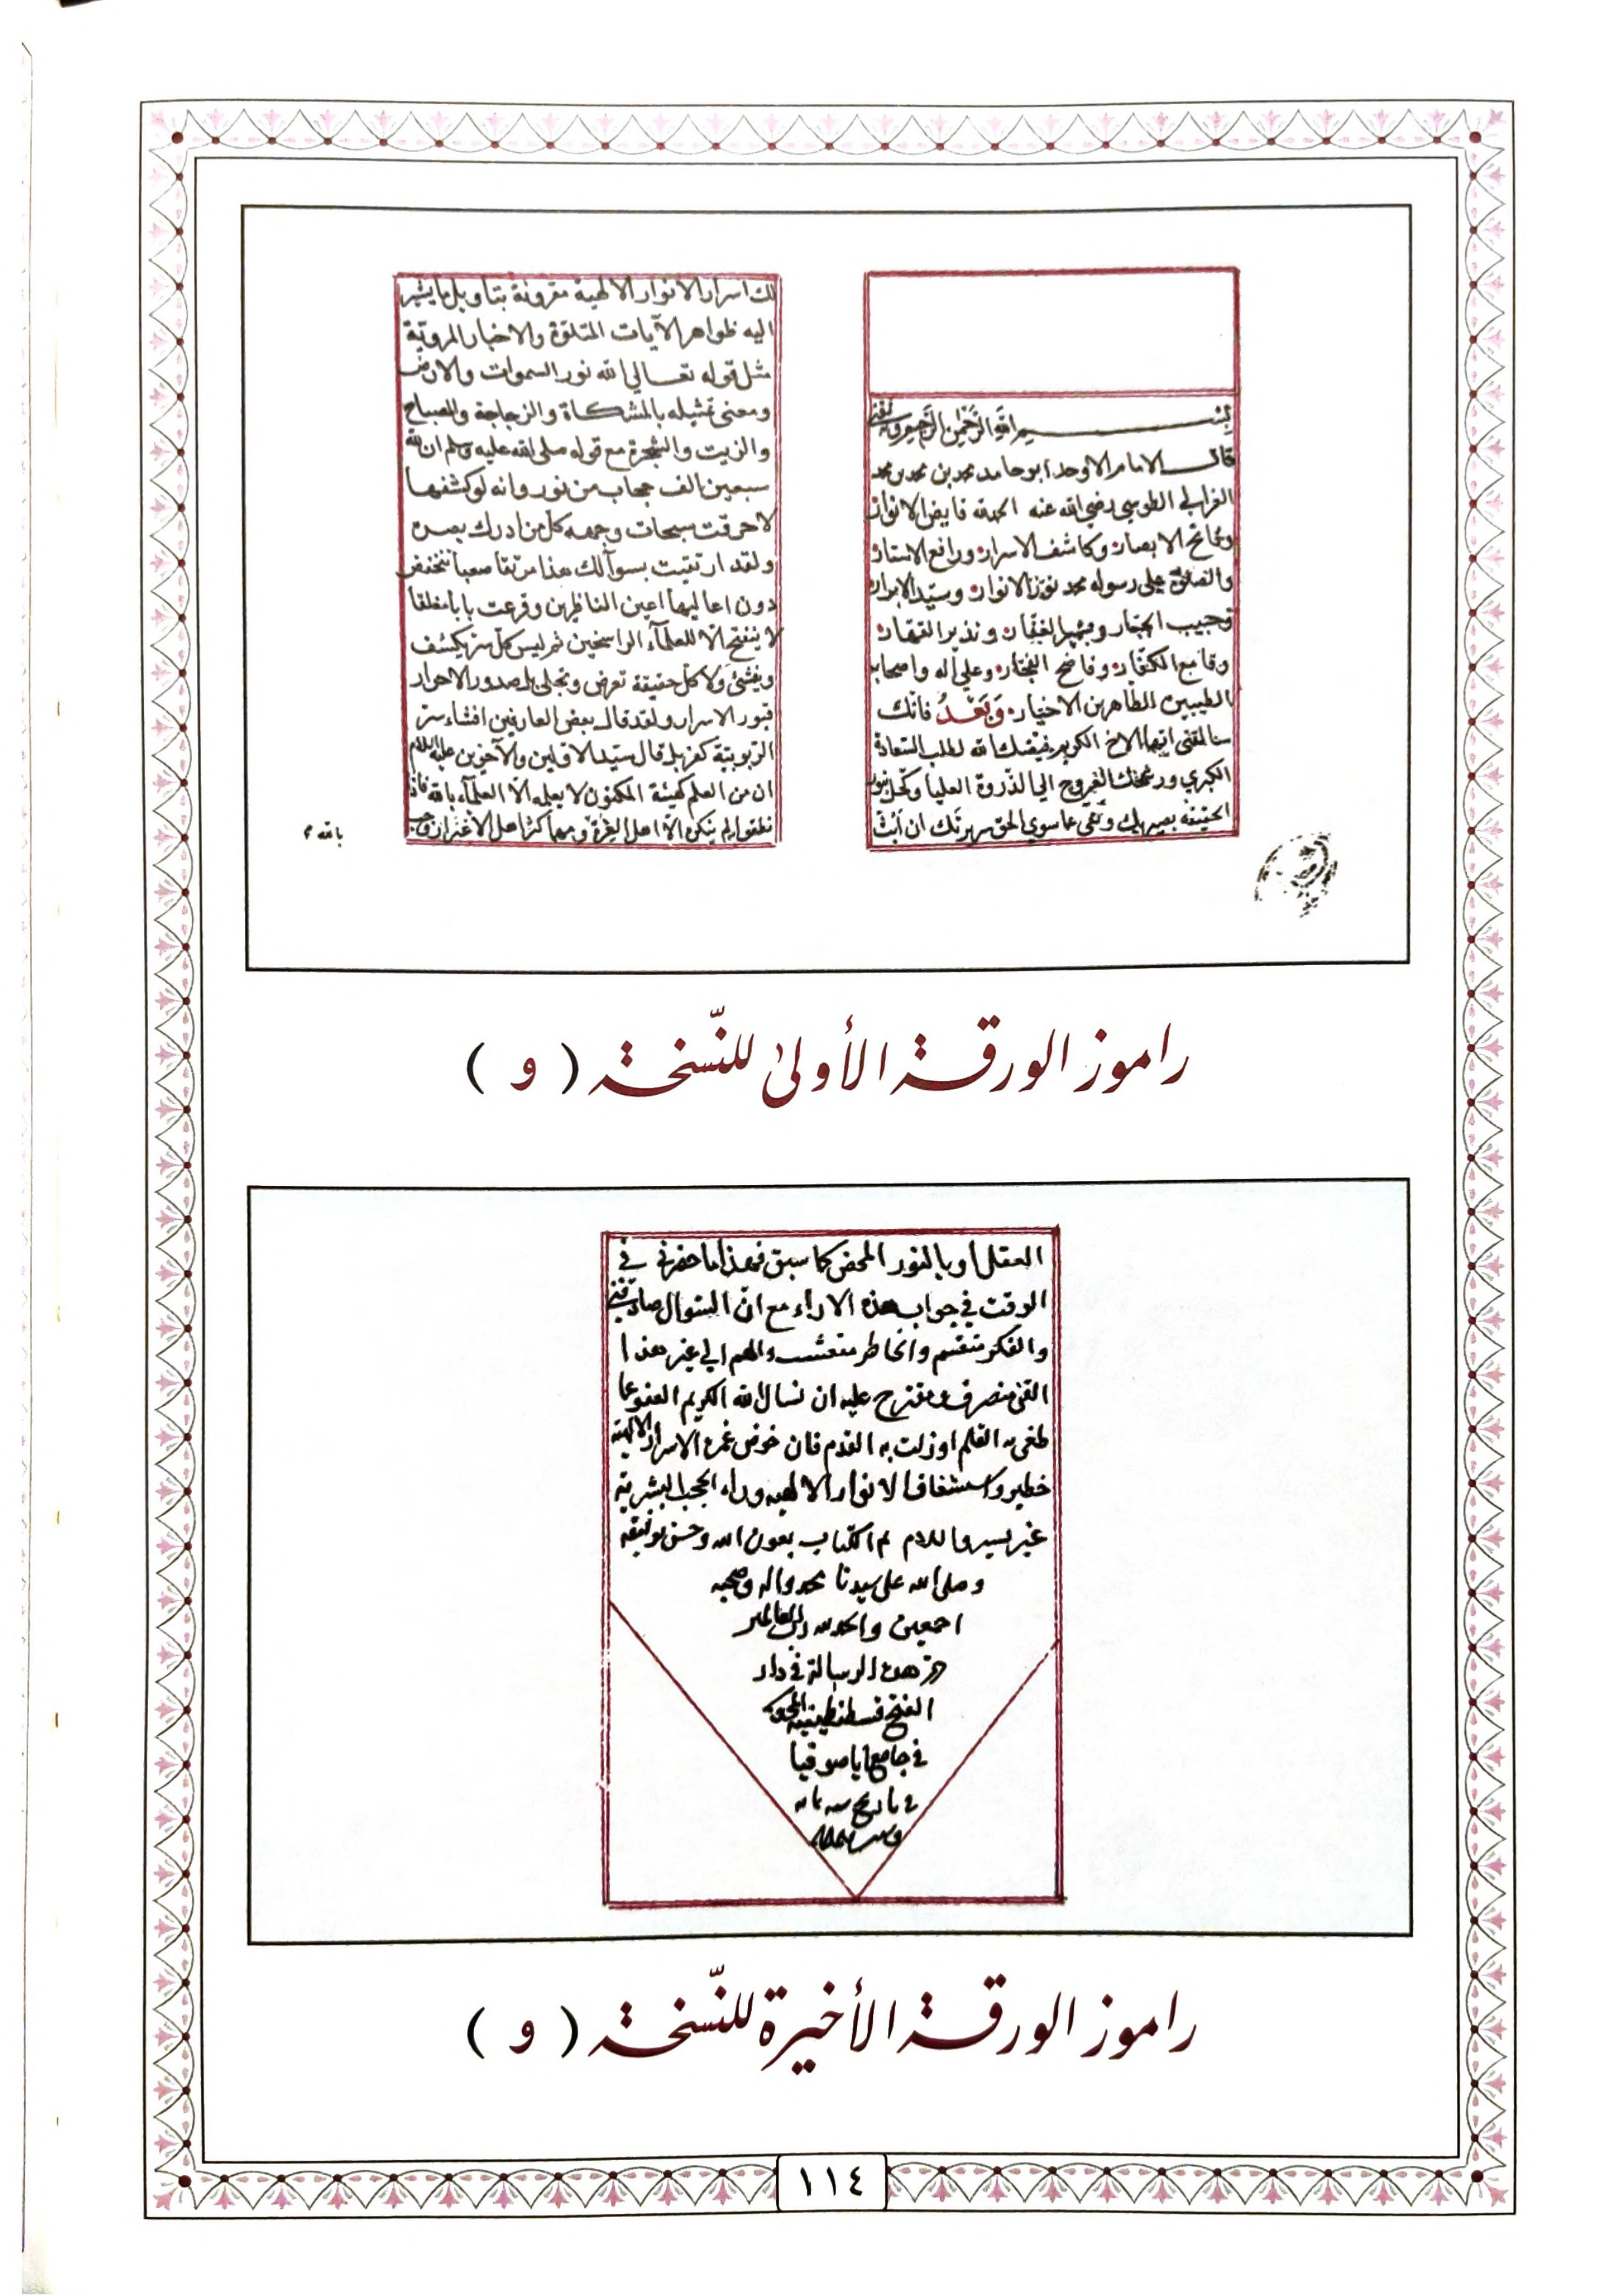 بسم الله الرحمن الرحيم وبه ثقتي
قال الامام الاوحد ابو حامد محمد بن محمد بن محمد
الغزالي الطوسي رضي الله عنه الحمد لله فايض الانوار
وفاتح الابصار وكاشف الاسرار ورافع الاستار
والصلوة على رسوله محمد نور الانوار وسيد الابرار
وحبيب الجبار وبشير الغفار ونذير القهار
وقامع الكفار وفاضح الفجار وعلى اله واصحابه
الطيبين الطاهرين الاخيار وبعد فانك
سالتني ايها الاخ الكريم قيضك الله لطلب السعادة
الكبري ورشحك للعروج الي الذروة العليا وكحل بنور
الحقيقة بصيرتك ونقي عما سوي الحق سريرتك ان ابث
لك اسرار الانوار الالهية مقرونة بتاويل ما يشير
اليه ظواهر الآيات المتلوة والاخبار المروية
مثل قوله تعالي الله نور السموات والارض
ومعنى تمثيله بالمشكاة والزجاجة والمصباح
والزيت والشجرة مع قوله صلى الله عليه وسلم ان لله
سبعين الف حجاب من نور وانه لو كشفها
لاحرقت سبحات وجهه كل من ادرك بصره
ولقد ارتقيت بسوآلك هذا مرتقا صعبا تنخفض
دون اعاليها اعين الناظرين وقرعت بابا مغلقا
لا ينفتح الا للعلمآء الراسخين ثم ليس كل سر يكشف
ويفشئ ولا كل حقيقة تعرض وتجلى بل صدور الاحرار
قبور الاسرار ولقد قال بعض العارفين افشاء سر
الربوبية كفر بل قال سيد الاولين والآخرين عليه السلام
ان من العلم كهيئة المكنون لا يعلمه الا العلمآء بالله فاذا
نطقوا به لم ينكره الا اهل الغرة ومهما كثر اهل الاغترار وجب
راموز الورقة الأولى للنّسخة ( و )
العقل او بالنور المحض كما سبق فهذا ما حضرني في
الوقت في جواب هذه الاراء مع ان السوال صادفني
والفكر منقسم والخاطر متشعب والهم الي غير هذا
الفن منصرف ومقترح عليه ان نسال الله الكريم العفو عما
طغى به القلم او زلت به القدم فان خوض غمرة الاسرار الالهية
خطير واستشفاف الانوار الالهيه وراء الحجب البشرية
غير يسير والسلام تم الكتاب بعون الله وحسن توفيقه
وصلى الله على سيدنا محمد واله وصحبه
اجمعين والحمد لله رب العالمين
هذه الرسالة في دار
الفتح قسطنطينية
في جامع ايا صوفيا
في تاريخ سنه
راموز الورقة الأخيرة للنّسخة ( و )
١١٤